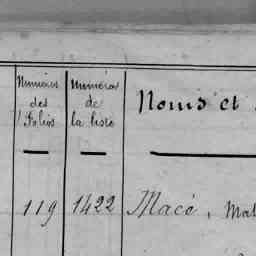 Numéros des Folios
Numéros de la liste
Noms et
119 1422 Macé, Mat